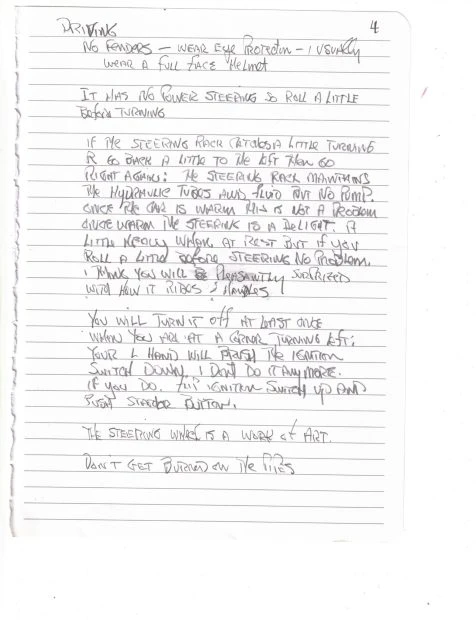 DRIVING
4
NO FENDERS - WEAR EYE PROTECTION - I USUALLY
WEAR A FULL FACE HELMET
IT HAS NO POWER STEERING SO ROLL A LITTLE
BEFORE TURNING
IF THE STEERING RACK CATCHES A LITTLE TURNING
R GO BACK A LITTLE TO THE LEFT THEN GO
RIGHT AGAIN: THE STEERING RACK MAINTAINS
THE HYDRAULIC TUBES AND FLUID BUT NO PUMP.
ONCE THE CAR IS WARM THIS IS NOT A PROBLEM
ONCE WARM THE STEERING IS A DELIGHT. A
LITTLE HEAVY WHEN AT REST BUT IF YOU
ROLL A LITTLE BEFORE STEERING NO PROBLEM.
I THINK YOU WILL BE PLEASANTLY SURPRIZED
WITH HOW IT RIDES & HANDLES
YOU WILL TURN IT OFF AT LEAST ONCE
WHEN YOU ARE AT A CORNER TURNING LEFT:
YOUR L HAND WILL PUSH THE IGNITION
SWITCH DOWN. I DON'T DO IT ANYMORE.
IF YOU DO. FLIP IGNITION SWITCH UP AND
PUSH STARTER BUTTON.
THE STEERING WHEEL IS A WORK OF ART.
DON'T GET BURNED ON THE PIPES